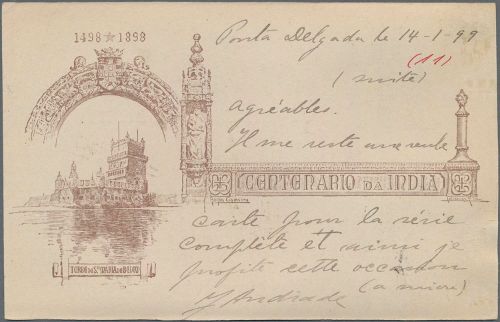 1498 1898
Ponta Delgada le 14-1-99
(11)
(suite)
agréables.
Il me reste une seule
CENTENARIO DA INDIA
carte pour la série
complète et ainsi je
profite cette occasion
(a suivre)
J Andrade
TORRE DE Sta MARIA DE BELEM